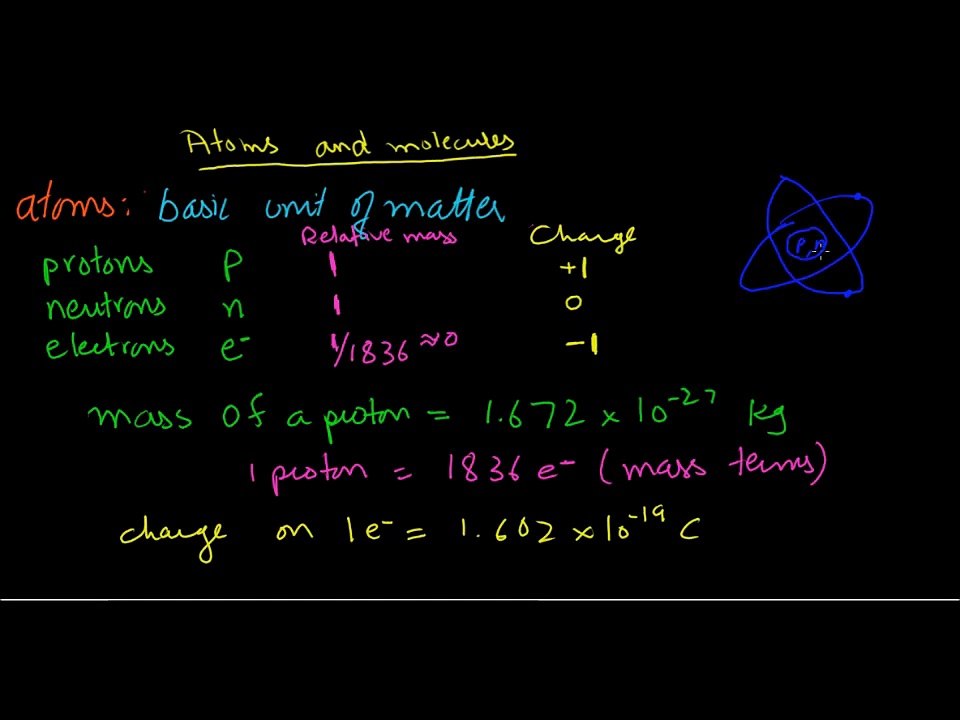 Atoms and molecules
atoms: basic unit of matter
Relative mass Charge
protons p 1 +1
neutrons n 1 0
electrons e⁻ 1/1836 ≈0 -1
P n
mass of a proton = 1.672 × 10⁻²⁷ kg
1 proton = 1836 e⁻ (mass terms)
charge on 1 e⁻ = 1.602 × 10⁻¹⁹ C